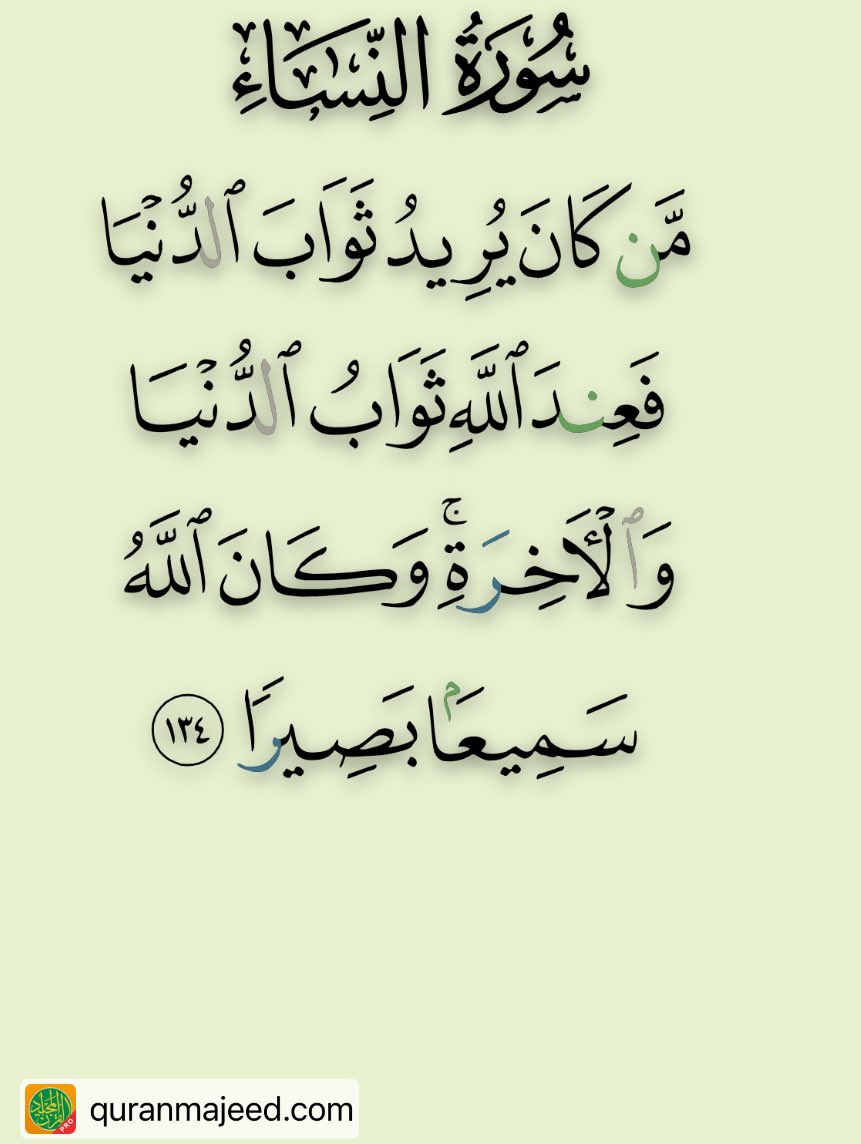 سُورَةُ النِّسَاءِ
مَّن كَانَ يُرِيدُ ثَوَابَ ٱلدُّنۡيَا
فَعِندَ ٱللَّهِ ثَوَابُ ٱلدُّنۡيَا
وَٱلۡأَخِرَةِۚ وَكَانَ ٱللَّهُ
سَمِيعَۢا بَصِيرٗا ١٣٤
quranmajeed.com